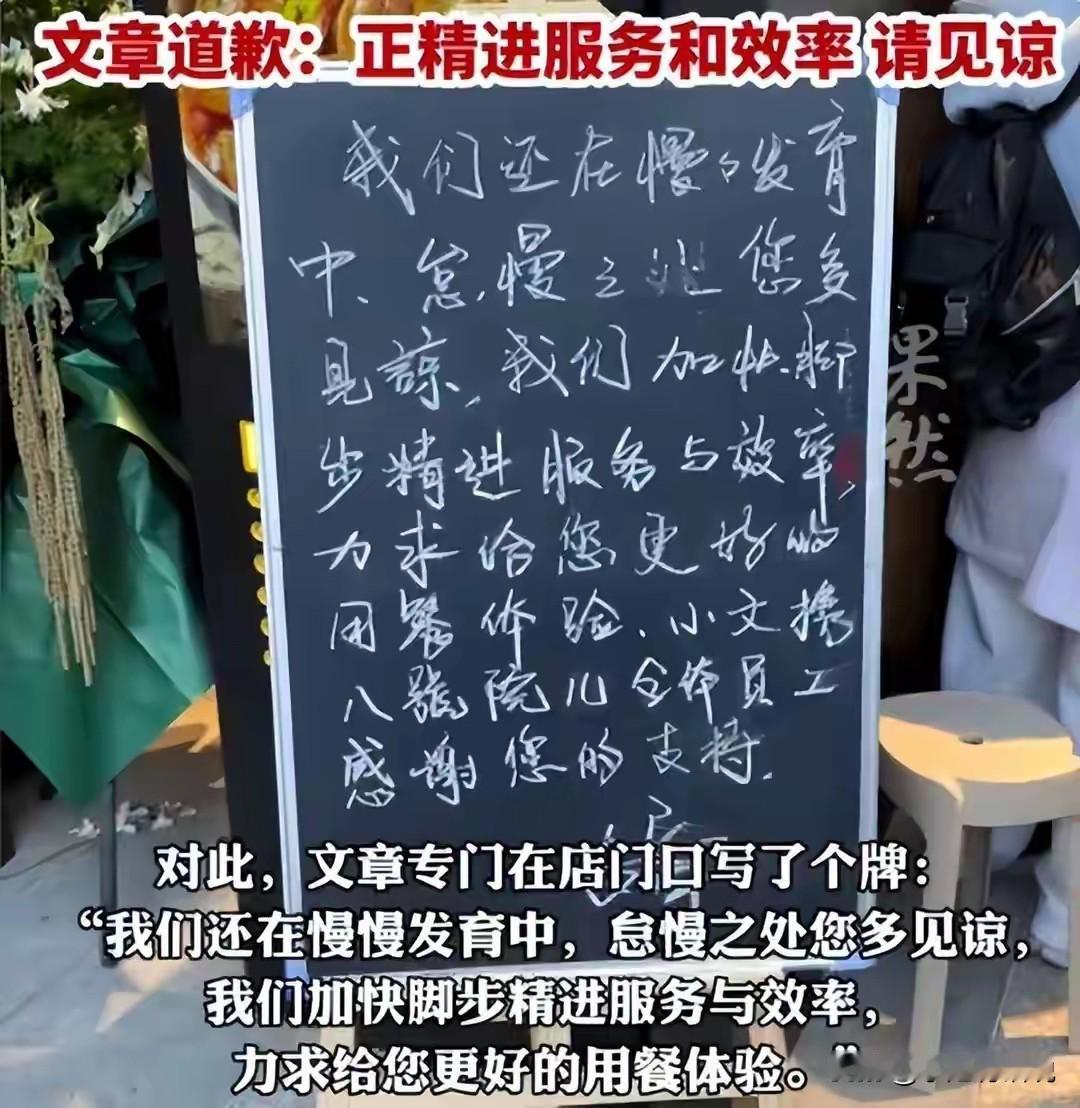 文章道歉：正精进服务和效率 请见谅
我们还在慢々发育
中、怠慢之处您多
见谅，我们加快脚
步精进服务与效率，
力求给您更好的
用餐体验、小文携
八號院儿全体员工
感谢您的支持.
果然
对此，文章专门在店门口写了个牌：
“我们还在慢慢发育中，怠慢之处您多见谅，
我们加快脚步精进服务与效率，
力求给您更好的用餐体验。”